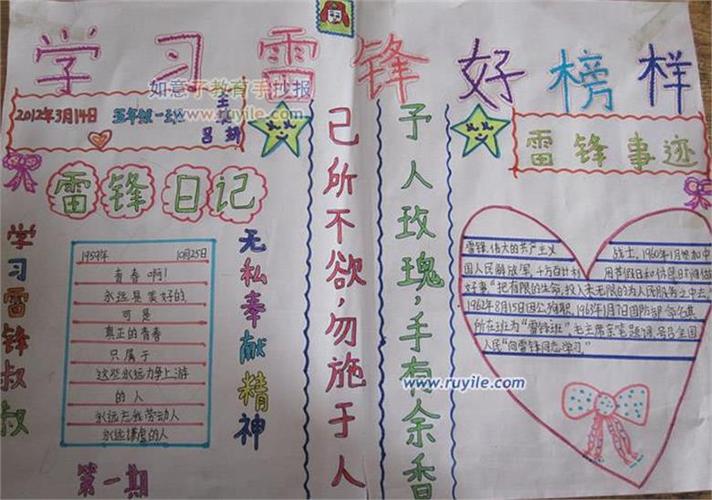 学习雷锋好榜样
如意了教育手抄报
www.ruyile.com
2012年3月14日 五年级一班
雷锋日记
学习雷锋叔叔
1959年 10月25日
青春啊!
永远是美好的,
可是
真正的青春
只属于
这些永远力争上游
的人
永远忘我劳动人
永远谦虚的人
无私奉献精神
第一期
己所不欲,勿施于人
予人玫瑰,手有余香
雷锋事迹
雷锋,伟大的共产主义 战士,1960年1月参加中
国人民解放军,千方百计
好事"把有限的生命,投入
1962年8月15日因公殉职,1963年1月7日国防部命名其
所在班为"雷锋班",毛主席亲笔题词,号召全国
人民"向雷锋同志学习"
www.ruyile.com